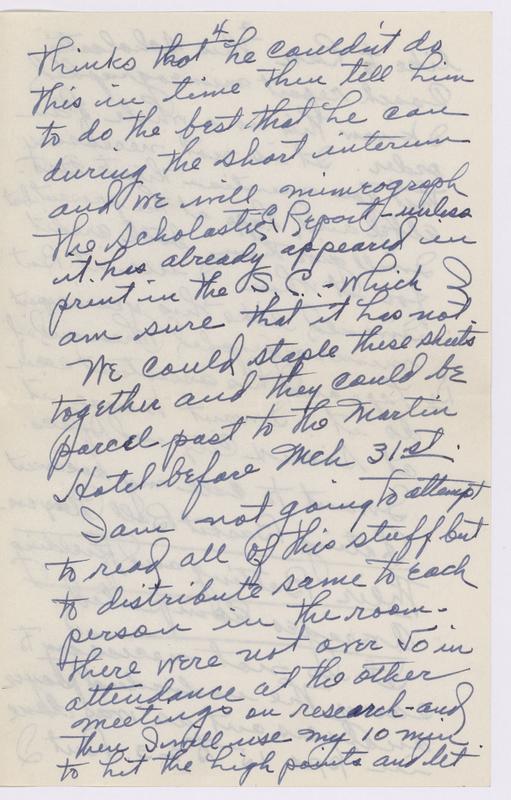 4
thinks that he couldn't do
this in time then tell him
to do the best that he can
during the short interim
and we will mimeograph
the Scholastic Report - unless
it has already appeared in
print in the S.C. - which I
am sure that it has not.
We could staple these sheets
together and they could be
parcel post to the Martin
Hotel before Mch 31st.
I am not going to attempt
to read all of this stuff but
to distribute same to each
person in the room -
there were not over 50 in
attendance at the other
meetings on research - and
then I will use my 10 min.
to hit the high points and let